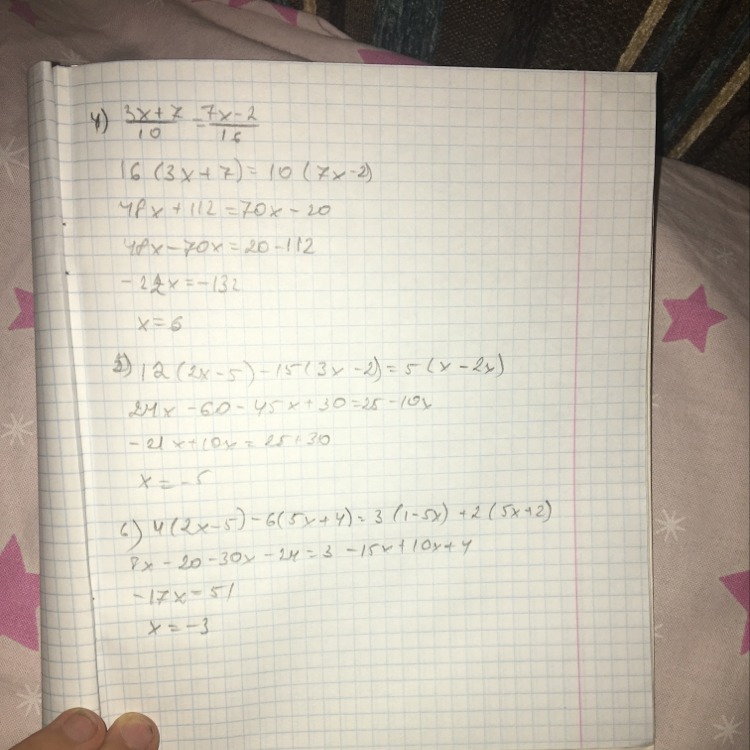 4) 3x+7/10 = 7x-2/16
16(3x+7)=10(7x-2)
48x+112=70x-20
48x-70x=20-112
-22x=-132
x=6
5) 12(2x-5)-15(3x-2)=5(x-2x)
24x-60-45x+30=25-10x
-21x+10x=25+30
x=-5
6) 4(2x-5)-6(5x+4)=3(1-5x)+2(5x+2)
8x-20-30x-24=3-15x+10x+4
-17x=51
x=-3